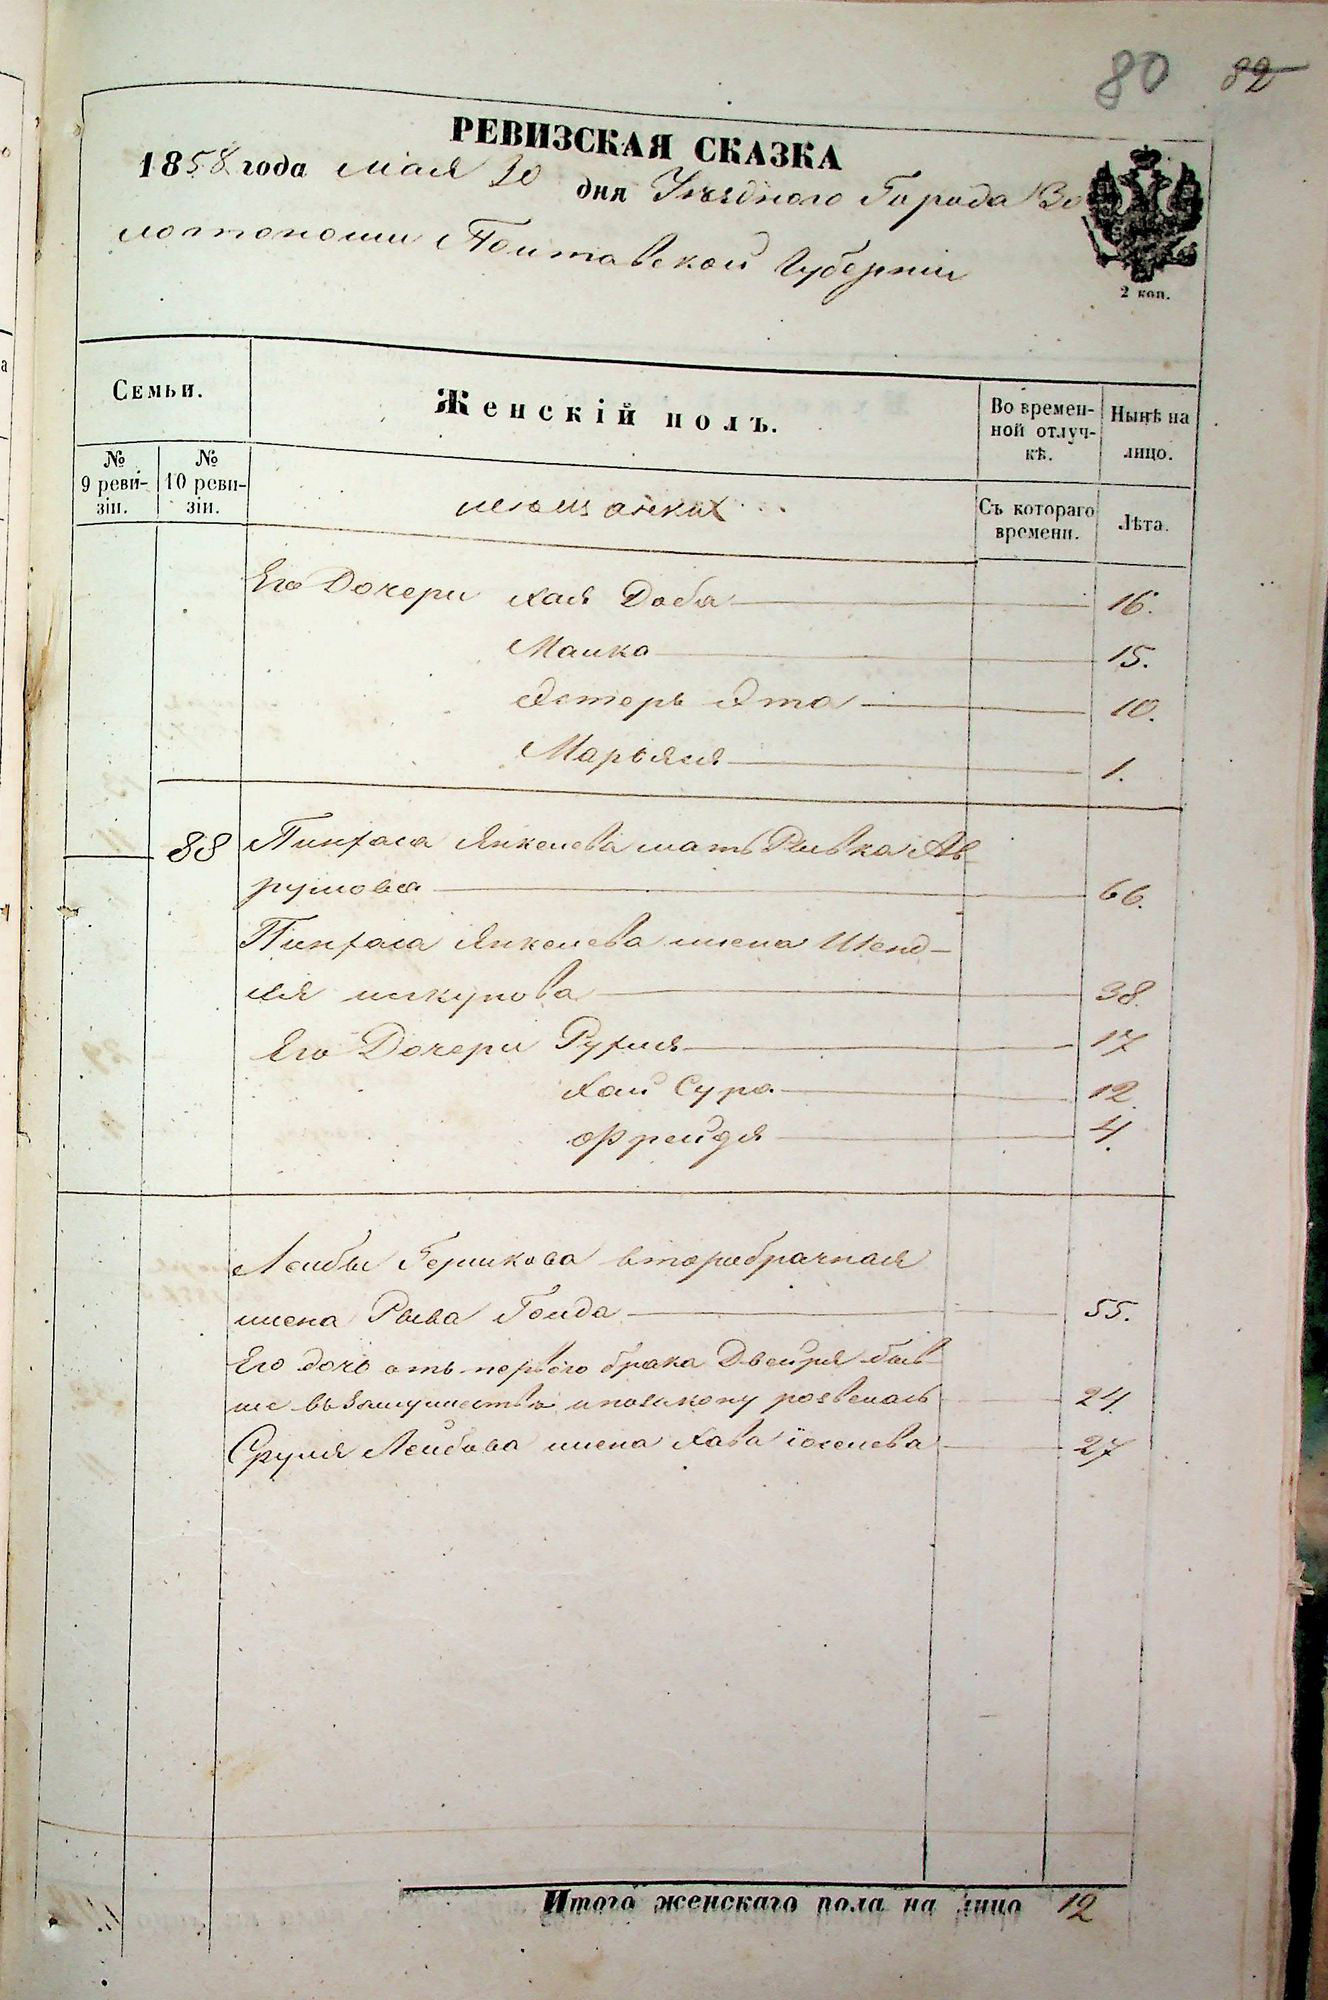 80 82
РЕВИЗСКАЯ СКАЗКА
1858 года мая 20 дня Уѣзднаго Города Зо
лотоноши Полтавской Губерніи
2 коп.
Семьи.
Женскій полъ.
Во времен-
ной отлуч-
кѣ.
Нынѣ на
лицо.
№
9 реви-
зіи.
№
10 реви-
зіи.
мещанках
Съ котораго
времени.
Лѣта.
Его Дочери Хая Доба 16.
Малка 15.
Эстеръ Эта 10.
Марьяся 1.
88 Пинхаса Янкелева мать Рывка Ав
румова 66.
Пинхаса Янкелева жена Шенд-
ля 38.
Его Дочери Рухля 17
Хая Сура 12.
Фрейдя 4.
Лейбы Гершкова второбрачная
жена Рыва Голда 55.
Его дочь отъ первого брака Двейря быв
ше въ замужествѣ и позакону розвелась 24.
Сруля Лейбова жена Хава Іоселева 27
Итого женскаго пола на лицо 12